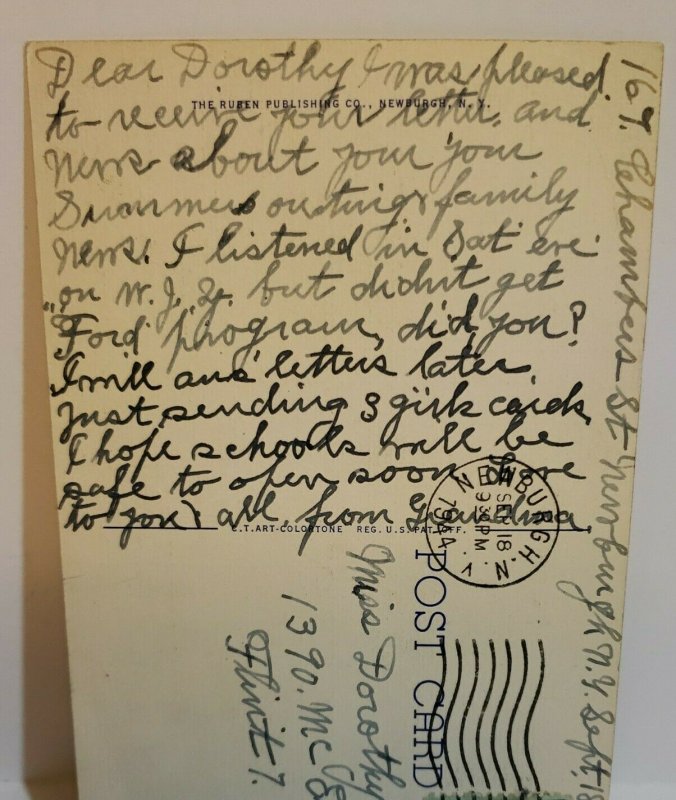 Dear Dorothy I was pleased
THE RUBEN PUBLISHING CO., NEWBURGH, N. Y.
to receive your letter, and
News about your your
Summers outing & family
News. I listened in Sat' eve
"on W.J.Z. but didn't get
Ford program, did you?
I will ans' letters later,
Just sending 3 girls cards,
I hope schools will be
safe to open soon, love
to you & all, from Grandma.
C.T. ART-COLORTONE REG. U.S. PAT. OFF.
167. Chambers St Newburgh N.Y. Sept. 18
NEWBURGH, N.Y.
SEP 18
9 30 PM
1944
POST CARD
Miss Dorothy
1390. Mc
Flint 7.